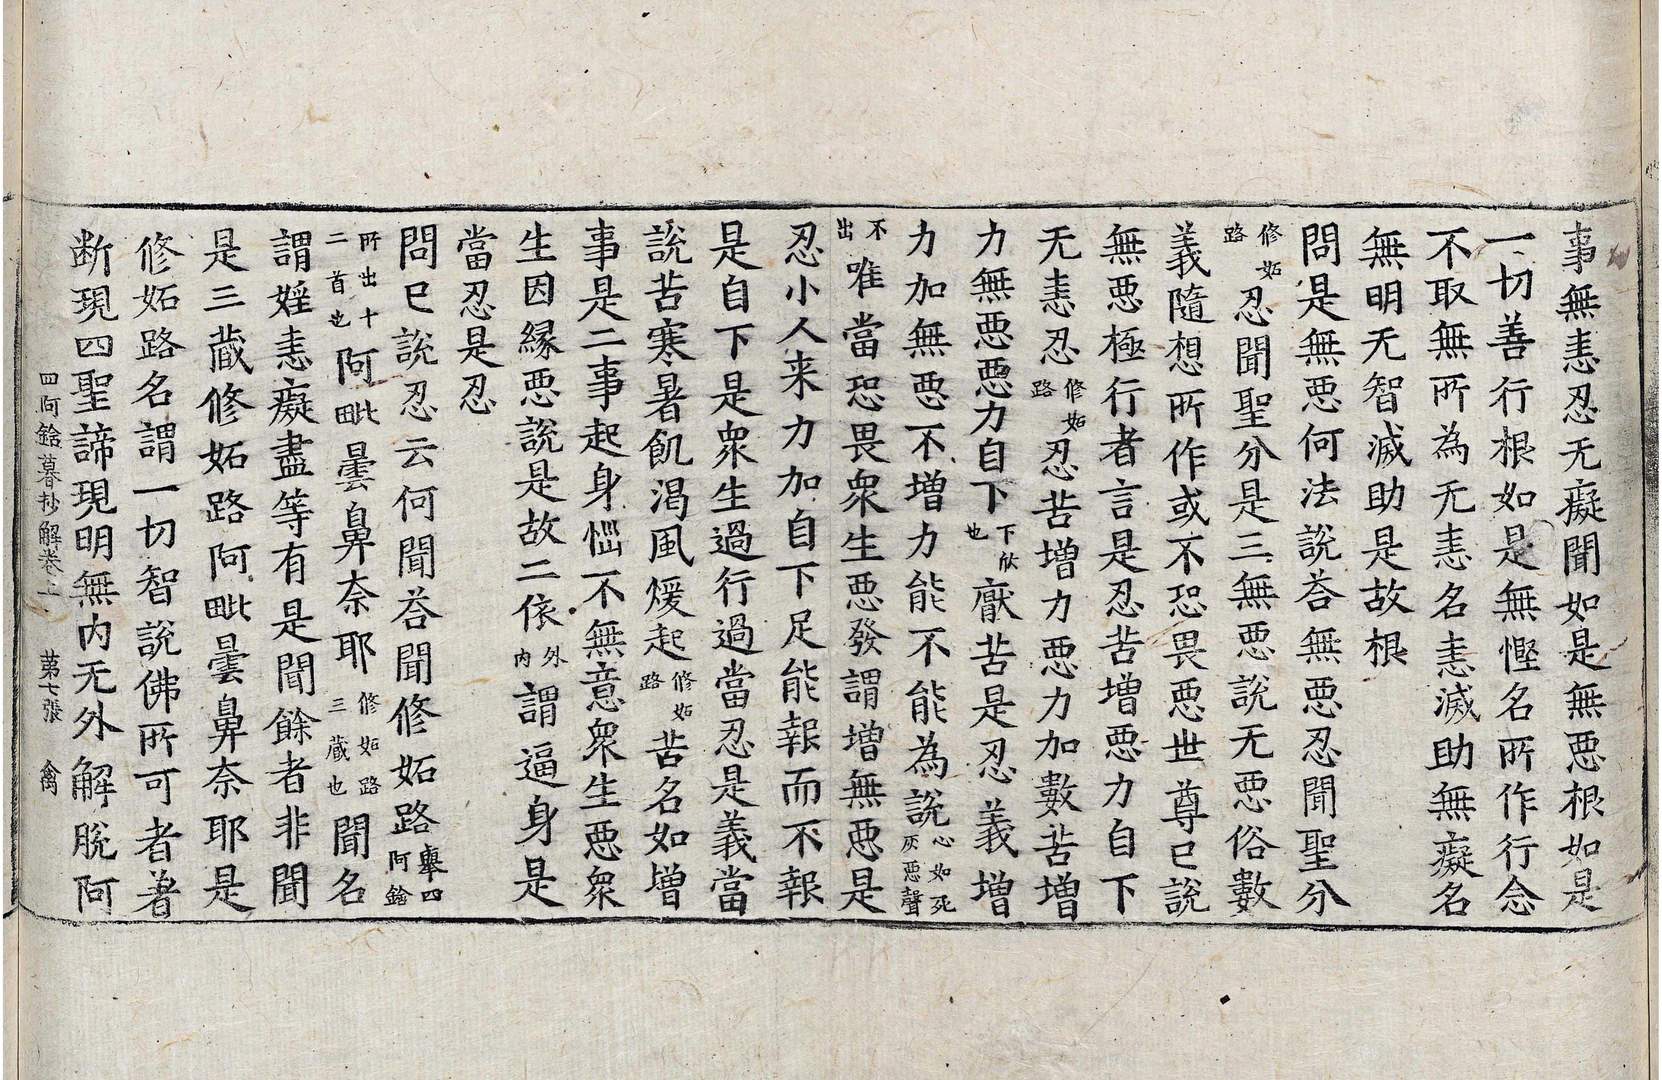 事無恚忍无癡聞如是無惡根如是
一切善行根如是無慳名所作行念
不取無所為无恚名恚滅助無癡名
無明无智滅助是故根
問是無惡何法說荅無惡忍聞聖分
修妬路忍聞聖分是三無惡說无惡俗數
義隨想所作或不恐畏惡世尊已說
無惡極行者言是忍苦增惡力自下
无恚忍修妬路忍苦增力惡力加數苦增
力無惡惡力自下下欿也厭苦是忍義增
力加無惡不增力能不能為說心如死灰惡聲
不出唯當恐畏衆生惡發謂增無惡是
忍小人来力加自下足能報而不報
是自下是衆生過行過當忍是義當
說苦寒暑飢渴風煖起修妬路苦名如增
事是二事起身惱不無意衆生惡衆
生因緣惡說是故二依外內謂逼身是
當忍是忍
問已說忍云何聞荅聞修妬路舉四阿鋡
所出十二首也阿毗曇鼻奈耶修妬路三藏也聞名
謂婬恚癡盡等有是聞餘者非聞
是三藏修妬路阿毗曇鼻奈耶是
修妬路名謂一切智說佛所可者著
断現四聖諦現明無內无外解脫阿
四阿鋡暮抄解卷上 第七張 禽